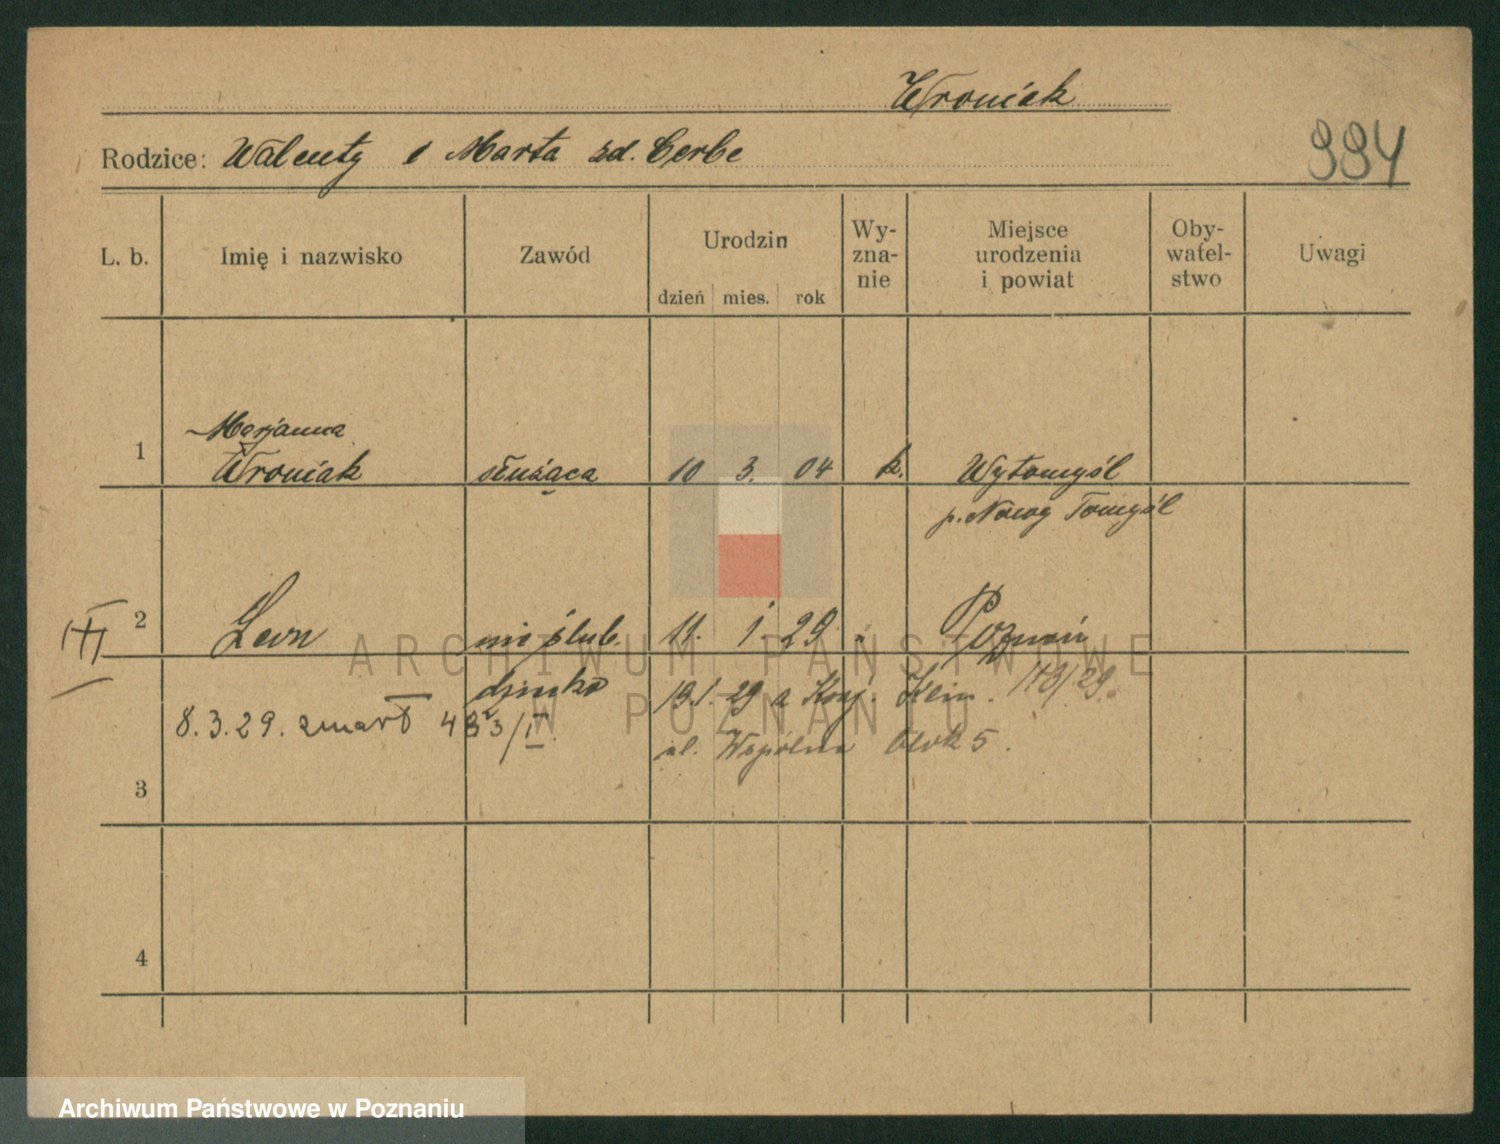 Wroniak
Rodzice: Walenty i Marta zd. Cerbe
994
L. b.
Imię i nazwisko
Zawód
Urodzin
dzień mies. rok
Wy-
zna-
nie
Miejsce
urodzenia
i powiat
Oby-
watel-
stwo
Uwagi
Marjanna
1 Wroniak służąca 10 3. 04 k. Wytomyśl
p. Nowy Tomyśl
2 Leon nieślub. 11. 1. 29 " Poznań
dziecko 19.1.29 a 143/29.
8.3.29. zmarł
ul. Wspólna blok 5.
3
4
ARCHIWUM PAŃSTWOWE
W POZNANIU
Archiwum Państwowe w Poznaniu